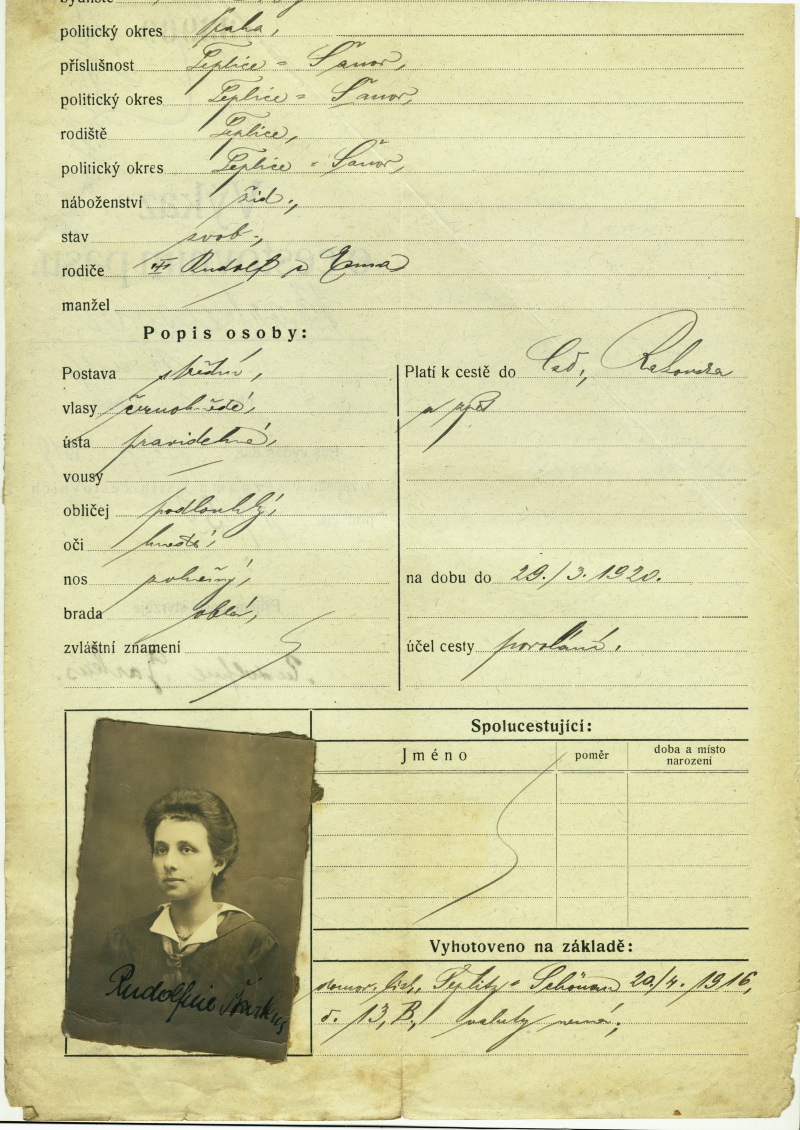 politický okres Praha,
příslušnost Teplice = Šanov,
politický okres Teplice = Šanov,
rodiště Teplice,
politický okres Teplice = Šanov,
náboženství žid.,
stav svob.,
rodiče Rudolf a Emma
manžel
Popis osoby:
Postava střední,
vlasy černohnědé,
ústa pravidelná,
vousy —
obličej podlouhlý,
oči hnědé,
nos
brada oblá,
zvláštní znamení
Platí k cestě do
a zpět
na dobu do 29./3. 1920.
účel cesty povolání.
Spolucestující:
Jméno
poměr
doba a místo
narození
Vyhotoveno na základě:
domov. list. Teplitz = Schönau 20/4. 1916,
č. 13, B, valuty nemá,
Rudolfine